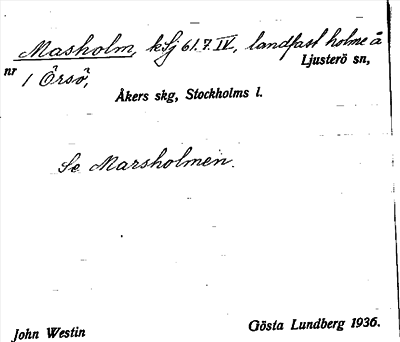 Masholm, kSj 61.7.IV, landfast holme å
nr 1 Örsö,
Ljusterö sn,
Åkers skg, Stockholms l.
Se Marsholmen.
John Westin
Gösta Lundberg 1936.